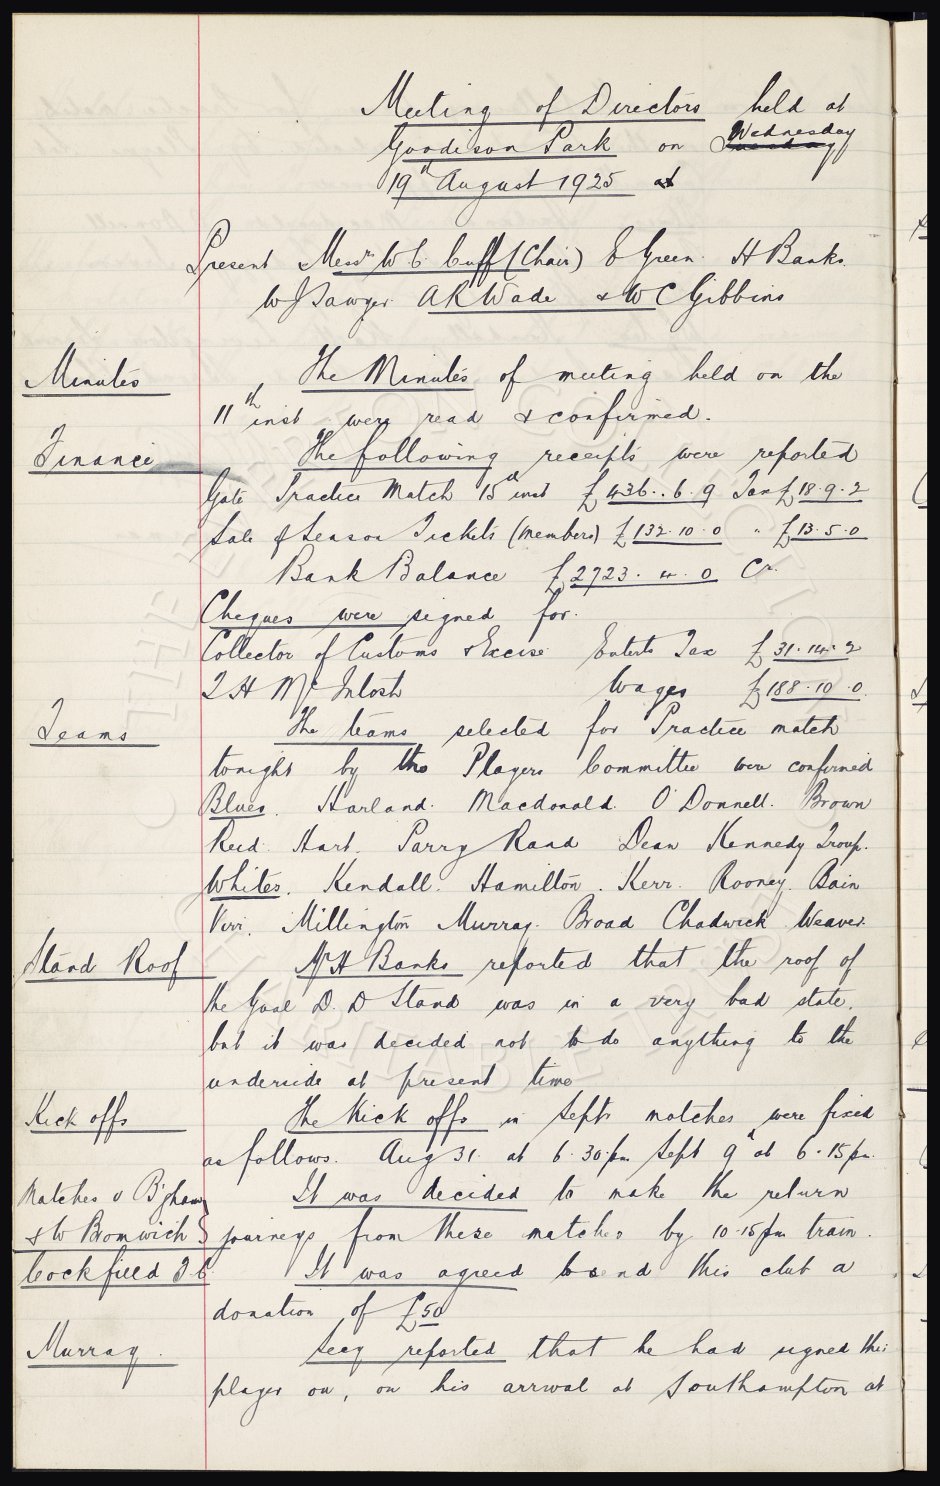 Meeting of Directors held at
Goodison Park on Wednesday
19th August 1925 at
Present Messrs W. C. Cuff (Chair) E Green. H Banks.
W J Sawyer A R Wade & W C Gibbins
Minutes
The Minutes of meeting held on the
11th inst were read & confirmed.
Finance
The following receipts were reported
Gate Practice Match 15th inst £436..6.9 Tax £18.9.2
Sale of Season Tickets (Members) £132.10.0 " £13.5.0
Bank Balance £2723.4.0 Cr.
Cheques were signed for.
Collector of Customs & Excise Enterts Tax £31.14.2
T H McIntosh Wages £188.10.0.
Teams
The teams selected for Practice match
tonight by the Players Committee were confirmed
Blues. Harland. Macdonald. O'Donnell. Brown
Reid. Hart. Parry Rand Dean Kennedy Troup.
Whites. Kendall. Hamilton. Kerr. Rooney. Bain
Virr. Millington Murray. Broad Chadwick Weaver.
Stand Roof
Mr H Banks reported that the roof of
the Goal D. D Stand was in a very bad state,
but it was decided not to do anything to the
underside at present time
Kick offs
The Kick offs in Septr matches were fixed
as follows. Aug 31. at 6.30.pm Sept 9th at 6.15pm.
Matches v B'gham
& W Bromwich
It was decided to make the return
journeys from these matches by 10.15pm train.
Cockfield F C.
It was agreed to send this club a
donation of £50
Murray.
Secy reported that he had signed this
player on, on his arrival at Southampton at